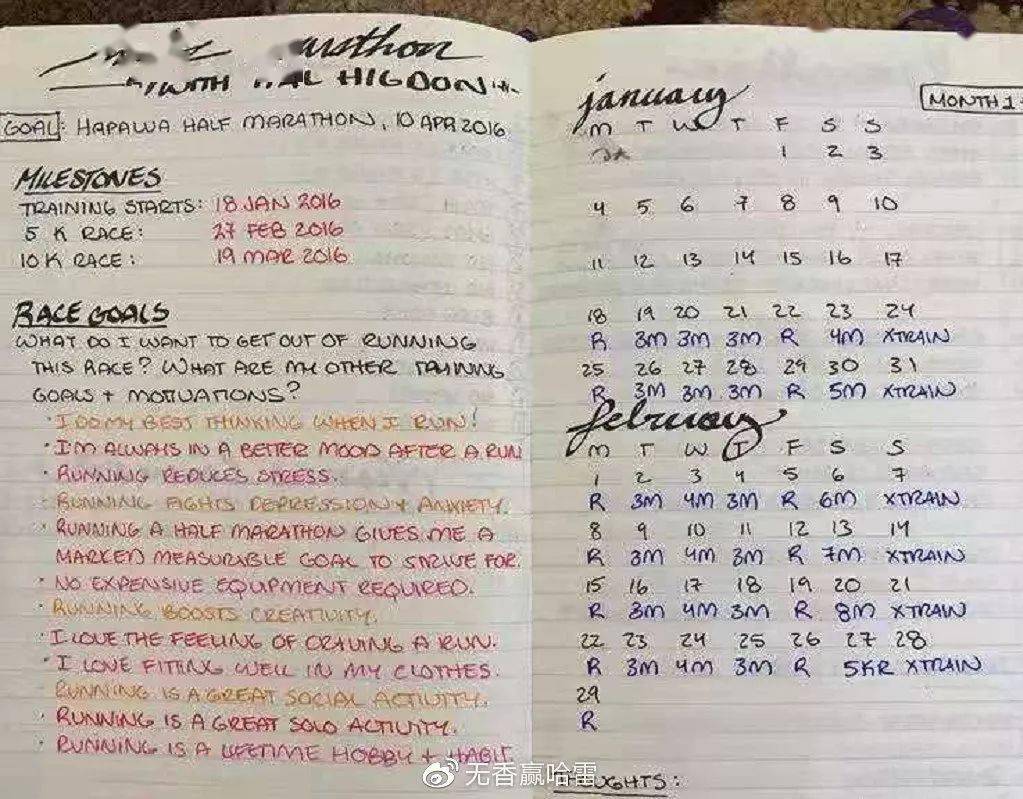 WITH HAL HIGDON
GOAL: HAPALUA HALF MARATHON, 10 APR 2016
MILESTONES
TRAINING STARTS: 18 JAN 2016
5 K RACE: 27 FEB 2016
10 K RACE: 19 MAR 2016
RACE GOALS
WHAT DO I WANT TO GET OUT OF RUNNING
THIS RACE? WHAT ARE MY OTHER TRAINING
GOALS + MOTIVATIONS?
· I DO MY BEST THINKING WHEN I RUN!
· I'M ALWAYS IN A BETTER MOOD AFTER A RUN
· RUNNING REDUCES STRESS.
· RUNNING FIGHTS DEPRESSION + ANXIETY.
· RUNNING A HALF MARATHON GIVES ME A
MARKED MEASURABLE GOAL TO STRIVE FOR.
· NO EXPENSIVE EQUIPMENT REQUIRED.
· RUNNING BOOSTS CREATIVITY.
· I LOVE THE FEELING OF CRAVING A RUN.
· I LOVE FITTING WELL IN MY CLOTHES.
· RUNNING IS A GREAT SOCIAL ACTIVITY.
· RUNNING IS A GREAT SOLO ACTIVITY.
· RUNNING IS A LIFETIME HOBBY + HABIT
january
MONTH 1
M T W T F S S
1 2 3
4 5 6 7 8 9 10
11 12 13 14 15 16 17
18 19 20 21 22 23 24
R 3M 3M 3M R 4M XTRAIN
25 26 27 28 29 30 31
R 3M 3M 3M R 5M XTRAIN
february
M T W T F S S
1 2 3 4 5 6 7
R 3M 4M 3M R 6M XTRAIN
8 9 10 11 12 13 14
R 3M 4M 3M R 7M XTRAIN
15 16 17 18 19 20 21
R 3M 4M 3M R 8M XTRAIN
22 23 24 25 26 27 28
R 3M 4M 3M R 5KR XTRAIN
29
R
THOUGHTS:
@无香赢哈雷